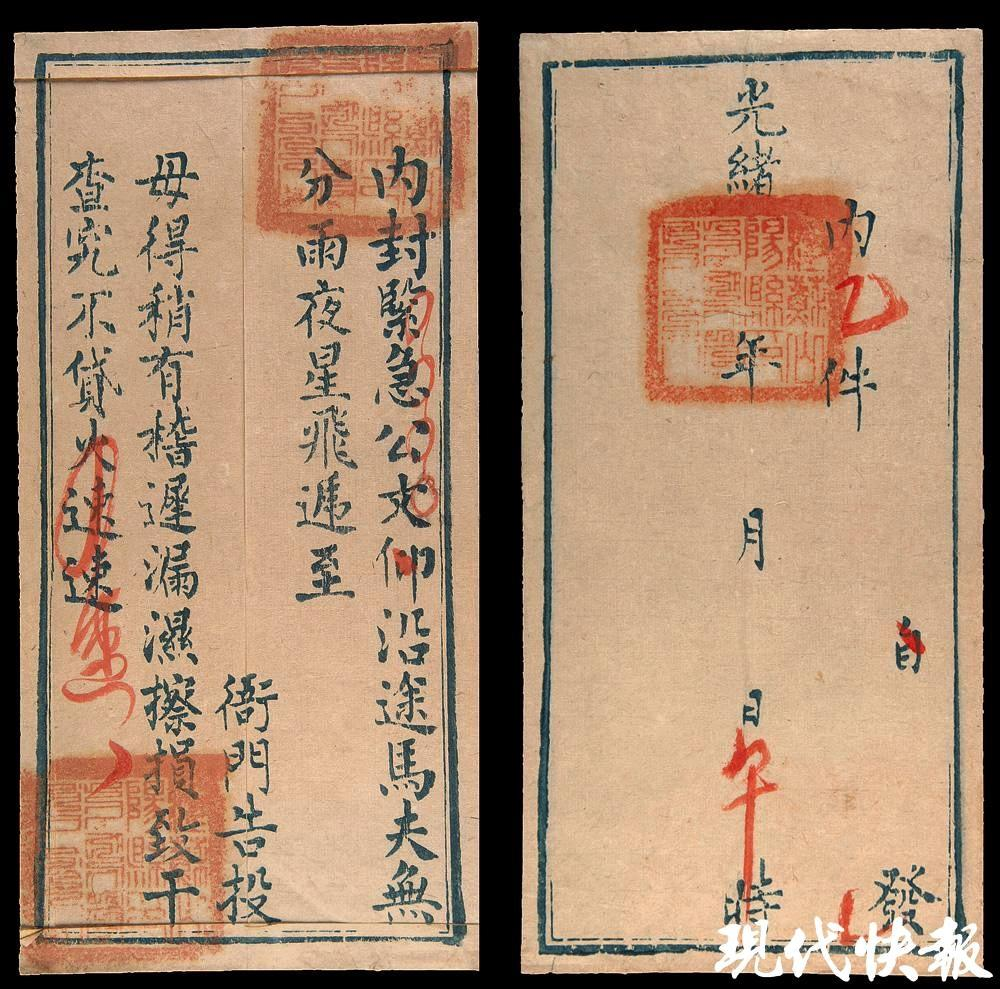 内封緊急公文仰沿途馬夫無
分雨夜星飛遞至
衙門告投
毋得稍有稽遲漏濕擦損致干
查究不貸火速速
內 件
自 發
光緒 年 月 日午時
現代快報